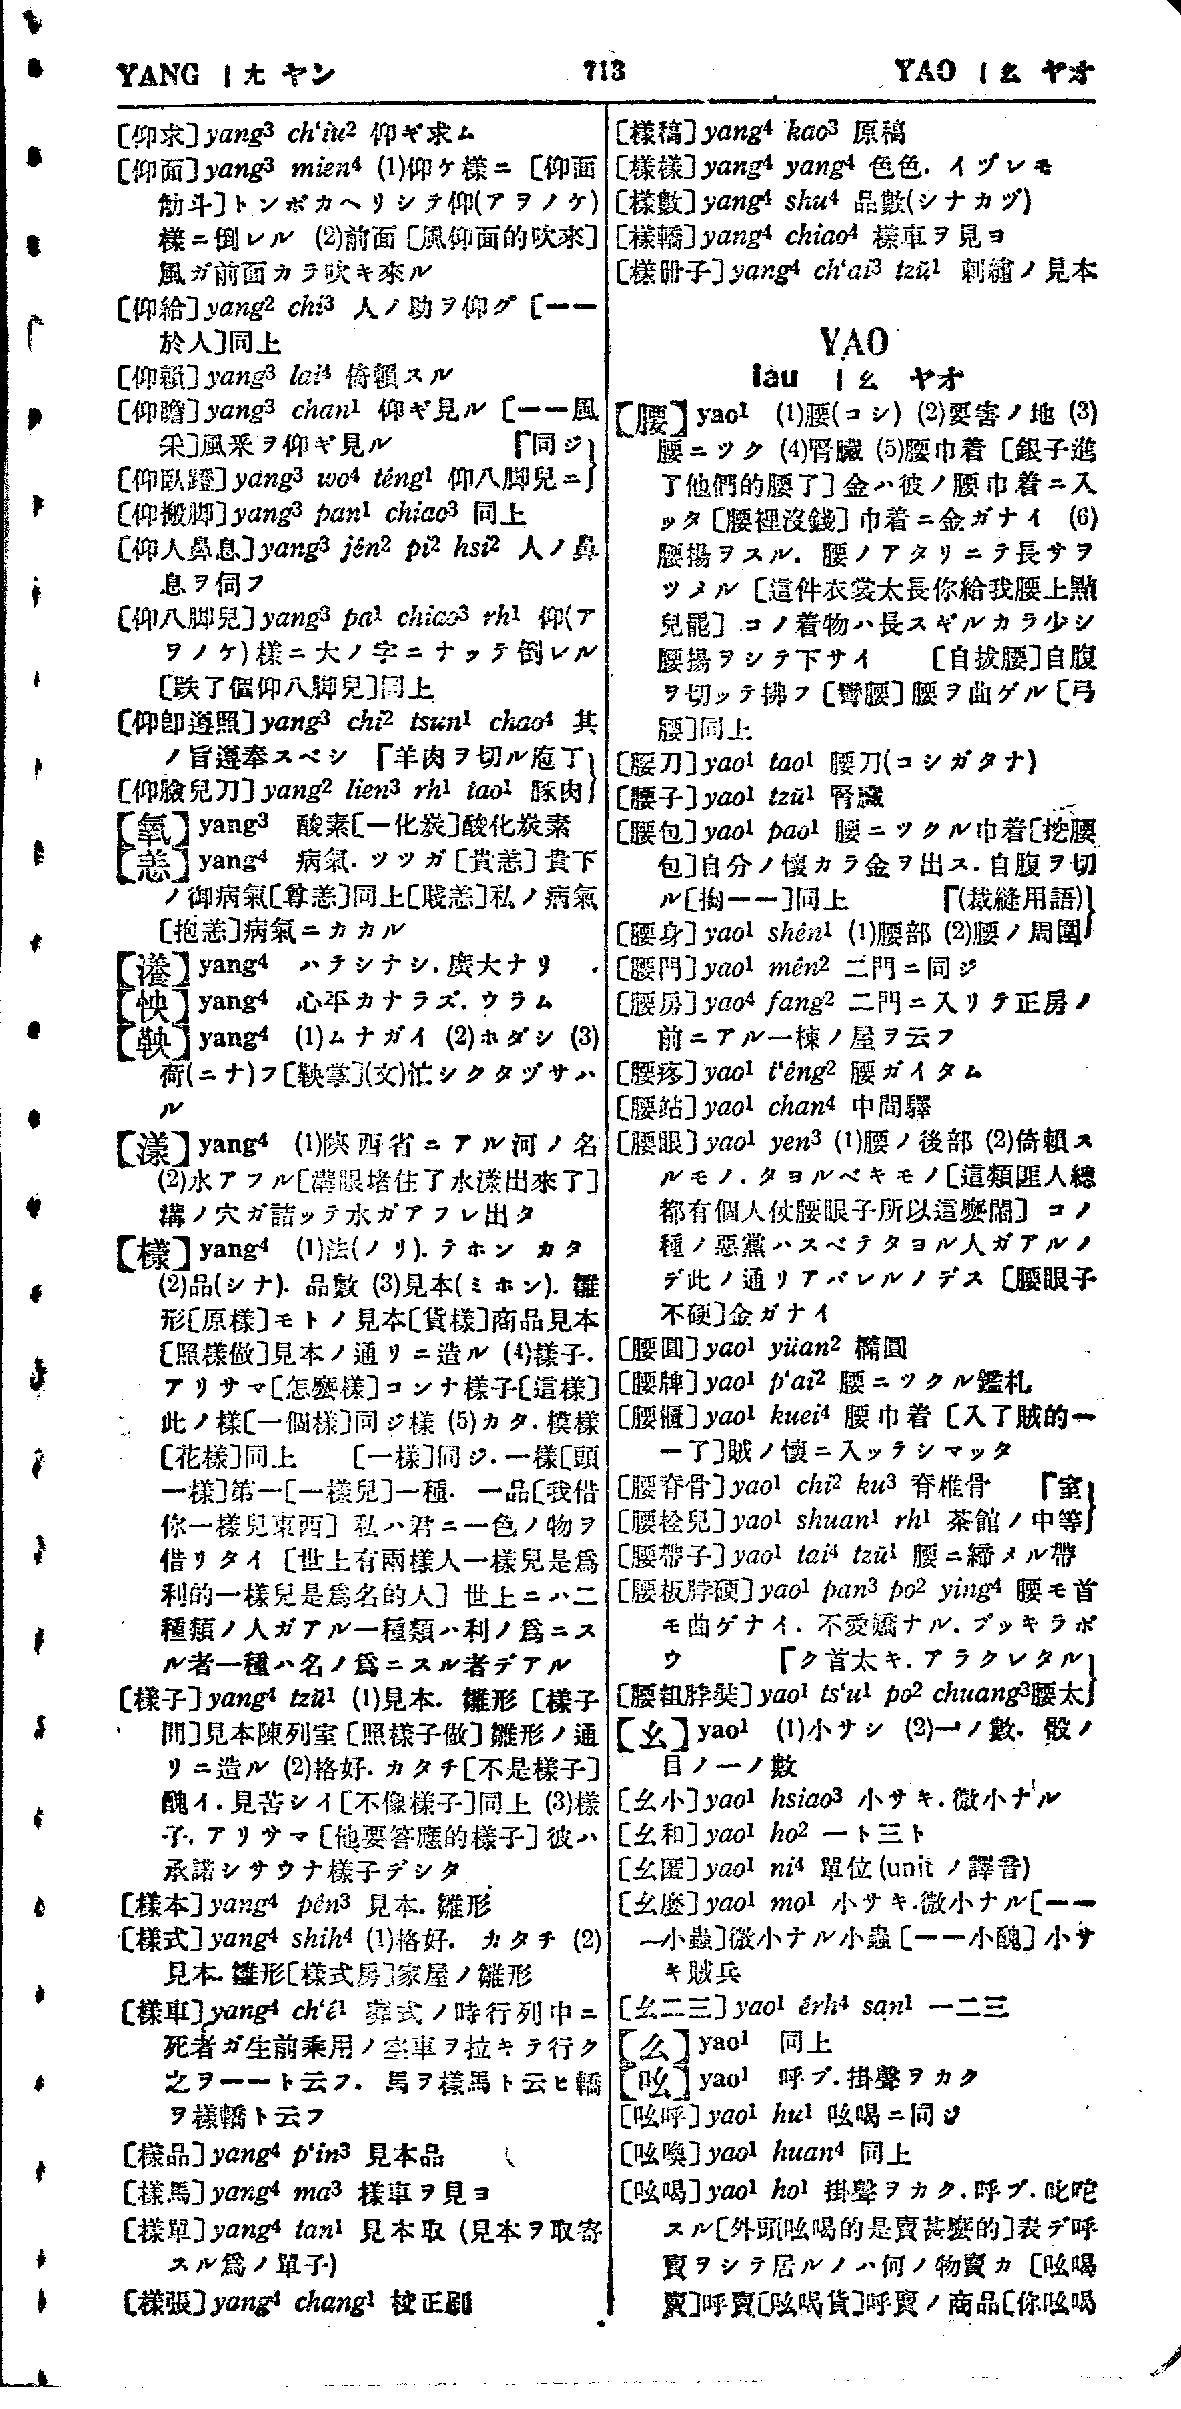 YANG ㄧㄤ ヤン
713
YAO ㄧㄠ ヤオ
[仰求] yang³ chʻiu² 仰ギ求ム
[仰面] yang³ mien⁴ (1)仰ケ樣ニ [仰面
觔斗]トンボカヘリシテ仰(アヲノケ)
樣ニ倒レル (2)前面 [風仰面的吹來]
風ガ前面カラ吹キ來ル
[仰給] yang² chi³ 人ノ助ヲ仰グ [一一
於人]同上
[仰賴] yang³ lai⁴ 倚賴スル
[仰瞻] yang³ chan¹ 仰ギ見ル [一一風
采]風釆ヲ仰ギ見ル 「同ジ}
[仰臥蹬] yang³ wo⁴ têng¹ 仰八脚兒ニ}
[仰搬脚] yang³ pan¹ chiao³ 同上
[仰人鼻息] yang³ jên² pi² hsi² 人ノ鼻
息ヲ伺フ
[仰八脚兒] yang³ pa¹ chiao³ rh¹ 仰(ア
ヲノケ)樣ニ大ノ字ニナッテ倒レル
[跌了個仰八脚兒]同上
[仰卽遵照] yang³ chi² tsun¹ chao⁴ 其
ノ旨遵奉スベシ 「羊肉ヲ切ル庖丁}
[仰臉兒刀] yang² lien³ rh¹ tao¹ 豚肉}
【氧】 yang³ 酸素[一化炭]酸化炭素
【恙】 yang⁴ 病氣. ツツガ [貴恙] 貴下
ノ御病氣[尊恙]同上[賤恙]私ノ病氣
[抱恙]病氣ニカカル
【瀁】 yang⁴ ハテシナシ. 廣大ナリ
【怏】 yang⁴ 心平カナラズ. ウラム
【鞅】 yang⁴ (1)ムナガイ (2)ホダシ (3)
荷(ニナ)フ[鞅掌](文)忙シクタヅサハ
ル
【漾】 yang⁴ (1)陝西省ニアル河ノ名
(2)水アフル[溝眼堵住了水漾出來了]
溝ノ穴ガ詰ッテ水ガアフレ出タ
【樣】 yang⁴ (1)法(ノリ). テホン カタ
(2)品(シナ). 品數 (3)見本(ミホン). 雛
形[原樣]モトノ見本[貨樣]商品見本
[照樣做]見本ノ通リニ造ル (4)樣子.
アリサマ[怎麼樣]コンナ樣子[這樣]
此ノ樣[一個樣]同ジ樣 (5)カタ. 模樣
[花樣]同上 [一樣]同ジ. 一樣[頭
一樣]第一[一樣兒]一種. 一品[我借
你一樣兒東西] 私ハ君ニ一色ノ物ヲ
借リタイ [世上有兩樣人一樣兒是爲
利的一樣兒是爲名的人] 世上ニハ二
種類ノ人ガアル一種類ハ利ノ爲ニス
ル者一種ハ名ノ爲ニスル者デアル
[樣子] yang⁴ tzŭ¹ (1)見本. 雛形 [樣子
間]見本陳列室 [照樣子做] 雛形ノ通
リニ造ル (2)格好. カタチ[不是樣子]
醜イ. 見苦シイ[不像樣子]同上 (3)樣
子. アリサマ [他要答應的樣子] 彼ハ
承諾シサウナ樣子デシタ
[樣本] yang⁴ pên³ 見本. 雛形
[樣式] yang⁴ shih⁴ (1)格好. カタチ (2)
見本. 雛形[樣式房]家屋ノ雛形
[樣車] yang⁴ chʻê¹ 葬式ノ時行列中ニ
死者ガ生前乘用ノ空車ヲ拉キテ行ク
之ヲ一一ト云フ. 馬ヲ樣馬ト云ヒ轎
ヲ樣轎ト云フ
[樣品] yang⁴ pʻin³ 見本品
[樣馬] yang⁴ ma³ 樣車ヲ見ヨ
[樣單] yang⁴ tan¹ 見本取 (見本ヲ取寄
スル爲ノ單子)
[樣張] yang⁴ chang¹ 校正刷
[樣稿] yang⁴ kao³ 原稿
[樣樣] yang⁴ yang⁴ 色色. イヅレモ
[樣數] yang⁴ shu⁴ 品數(シナカヅ)
[樣轎] yang⁴ chiao⁴ 樣車ヲ見ヨ
[樣册子] yang⁴ chʻai³ tzŭ¹ 刺繡ノ見本
YAO
iau ㄧㄠ ヤオ
【腰】 yao¹ (1)腰(コシ) (2)要害ノ地 (3)
腰ニツク (4)腎臟 (5)腰巾着 [銀子進
了他們的腰了] 金ハ彼ノ腰巾着ニ入
ッタ [腰裡沒錢] 巾着ニ金ガナイ (6)
腰揚ヲスル. 腰ノアタリニテ長サヲ
ツメル [這件衣裳太長你給我腰上點
兒罷] コノ着物ハ長スギルカラ少シ
腰揚ヲシテ下サイ [自拔腰]自腹
ヲ切ッテ拂フ [彎腰] 腰ヲ曲ゲル [弓
腰]同上
[腰刀] yao¹ tao¹ 腰刀(コシガタナ)
[腰子] yao¹ tzŭ¹ 腎臟
[腰包] yao¹ pao¹ 腰ニツクル巾着[挖腰
包]自分ノ懷カラ金ヲ出ス. 自腹ヲ切
ル[掏一一]同上 「(裁縫用語)}
[腰身] yao¹ shên¹ (1)腰部 (2)腰ノ周圍}
[腰門] yao¹ mên² 二門ニ同ジ
[腰房] yao⁴ fang² 二門ニ入リテ正房ノ
前ニアル一棟ノ屋ヲ云フ
[腰疼] yao¹ tʻêng² 腰ガイタム
[腰站] yao¹ chan⁴ 中間驛
[腰眼] yao¹ yen³ (1)腰ノ後部 (2)倚賴ス
ルモノ. タヨルベキモノ[這類匪人總
都有個人仗腰眼子所以這麼鬧] コノ
種ノ惡黨ハスベテタヨル人ガアルノ
デ此ノ通リアバレルノデス [腰眼子
不硬]金ガナイ
[腰圓] yao¹ yüan² 橢圓
[腰牌] yao¹ pʻai² 腰ニツクル鑑札
[腰櫃] yao¹ kuei⁴ 腰巾着 [入了賊的一
一了]賊ノ懷ニ入ッテシマッタ
[腰脊骨] yao¹ chi² ku³ 脊椎骨 「室}
[腰栓兒] yao¹ shuan¹ rh¹ 茶館ノ中等}
[腰帶子] yao¹ tai⁴ tzŭ¹ 腰ニ締メル帶
[腰板脖硬] yao¹ pan³ po² ying⁴ 腰モ首
モ曲ゲナイ. 不愛嬌ナル. ブッキラボ
ウ 「ク首太キ. アラクレタル}
[腰粗脖奘] yao¹ tsʻu¹ po² chuang³ 腰太}
【幺】 yao¹ (1)小サシ (2)一ノ數. 骰ノ
目ノ一ノ數
[幺小] yao¹ hsiao³ 小サキ. 微小ナル
[幺和] yao¹ ho² 一ト三ト
[幺匿] yao¹ ni⁴ 單位 (unit ノ譯音)
[幺麼] yao¹ mo¹ 小サキ. 微小ナル[一一
小蟲]微小ナル小蟲 [一一小醜] 小サ
キ賊兵
[幺二三] yao¹ êrh⁴ san¹ 一二三
【么】 yao¹ 同上
【吆】 yao¹ 呼ブ. 掛聲ヲカク
[吆呼] yao¹ hu¹ 吆喝ニ同ジ
[吆喚] yao¹ huan⁴ 同上
[吆喝] yao¹ ho¹ 掛聲ヲカク. 呼ブ. 叱咤
スル[外頭吆喝的是賣甚麼的]表デ呼
賣ヲシテ居ルノハ何ノ物賣カ [吆喝
賣]呼賣[吆喝貨]呼賣ノ商品[你吆喝